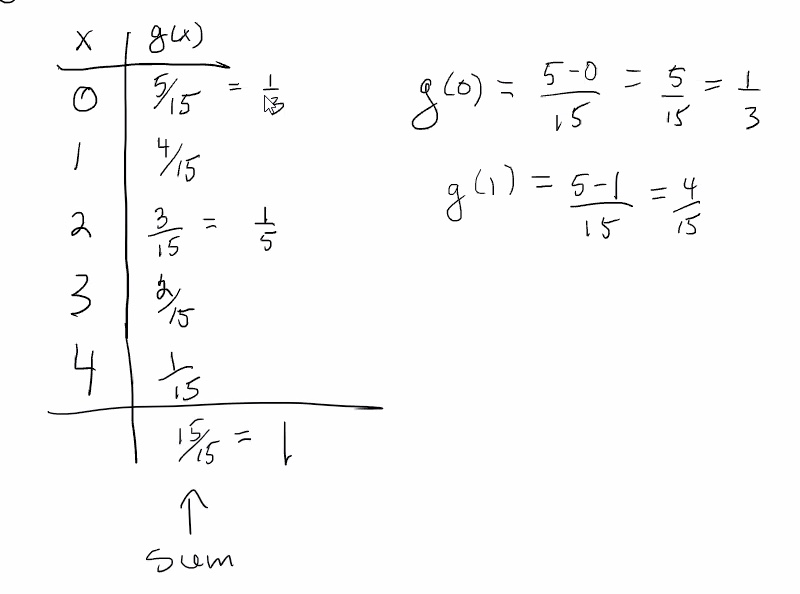 x g(x)
0 5/15 = 1/3
1 4/15
2 3/15 = 1/5
3 2/15
4 1/15
15/15 = 1
↑
sum
g(0) = 5-0/15 = 5/15 = 1/3
g(1) = 5-1/15 = 4/15